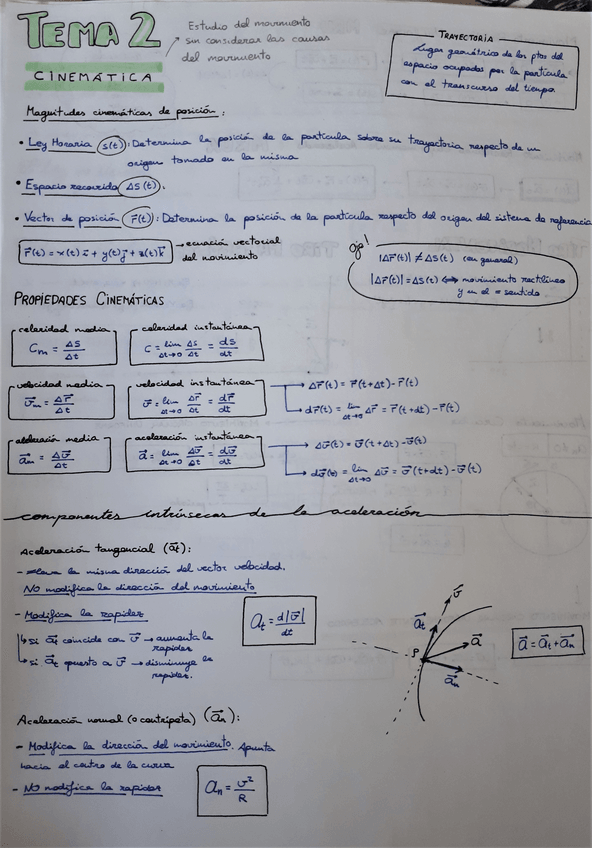 TEMA 2
CINEMÁTICA
Estudio del movimiento
sin considerar las causas
del movimiento
TRAYECTORIA
Lugar geométrico de los ptos del
espacio ocupados por la partícula
con el transcurso del tiempo
Magnitudes cinemáticas de posición:
• Ley Horaria s(t): Determina la posición de la partícula sobre su trayectoria respecto de un
origen tomado en la misma
• Espacio recorrido Δs(t).
• Vector de posición r⃗(t): Determina la posición de la partícula respecto del origen del sistema de referencia
r⃗(t) = x(t) i⃗ + y(t) j⃗ + z(t) k⃗ → ecuación vectorial
del movimiento
ojo!
|Δr⃗(t)| ≠ Δs(t) (en general)
|Δr⃗(t)| = Δs(t) ⟺ movimiento rectilíneo
y en el = sentido
PROPIEDADES CINEMÁTICAS
celeridad media
Cm = Δs/Δt
celeridad instantánea
C = lim Δt→0 Δs/Δt = ds/dt
velocidad media
v⃗m = Δr⃗/Δt
velocidad instantánea
v⃗ = lim Δt→0 Δr⃗/Δt = dr⃗/dt
→ Δr⃗(t) = r⃗(t+Δt) - r⃗(t)
→ dr⃗(t) = lim Δt→0 Δr⃗ = r⃗(t+dt) - r⃗(t)
aceleración media
a⃗m = Δv⃗/Δt
aceleración instantánea
a⃗ = lim Δt→0 Δv⃗/Δt = dv⃗/dt
→ Δv⃗(t) = v⃗(t+Δt) - v⃗(t)
→ dv⃗(t) = lim Δt→0 Δv⃗ = v⃗(t+dt) - v⃗(t)
componentes intrínsecas de la aceleración
Aceleración tangencial (a⃗t):
- lleva la misma dirección del vector velocidad.
NO modifica la dirección del movimiento
- Modifica la rapidez
↳ si a⃗t coincide con v⃗ → aumenta la
rapidez
↳ si a⃗t opuesto a v⃗ → disminuye la
rapidez.
at = d|v⃗|/dt
v⃗
a⃗t
a⃗
P
a⃗n
a⃗ = a⃗t + a⃗n
Aceleración normal (o centrípeta) (a⃗n):
- Modifica la dirección del movimiento. Apunta
hacia el centro de la curva
- NO modifica la rapidez
an = v²/R